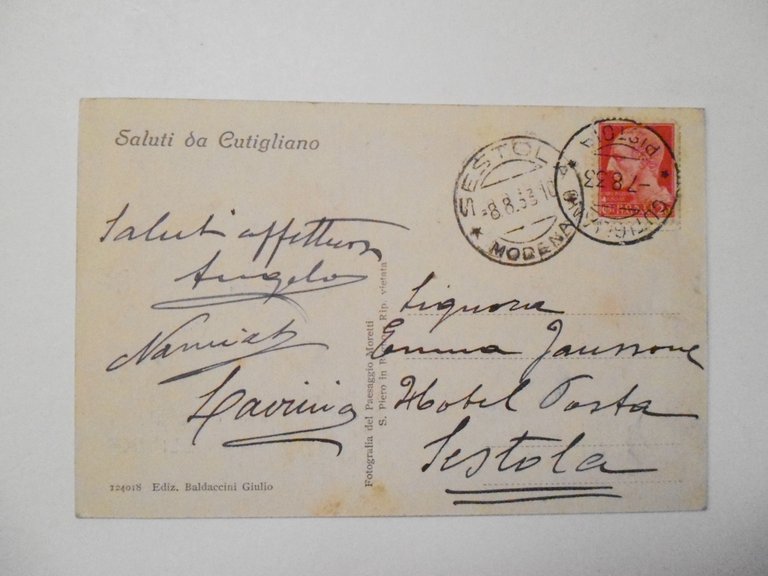 Saluti da Cutigliano
SESTOLA
-8.8.33.10
* MODENA *
CUTIGLIANO
* PISTOIA *
-7.8.33
Saluti affettuosi
Angelo
Lavinia
Signora
Emma
Hotel Posta
Sestola
Fotografia del Paesaggio Moretti
S. Piero in Rip. vietata
124018 Ediz. Baldaccini Giulio